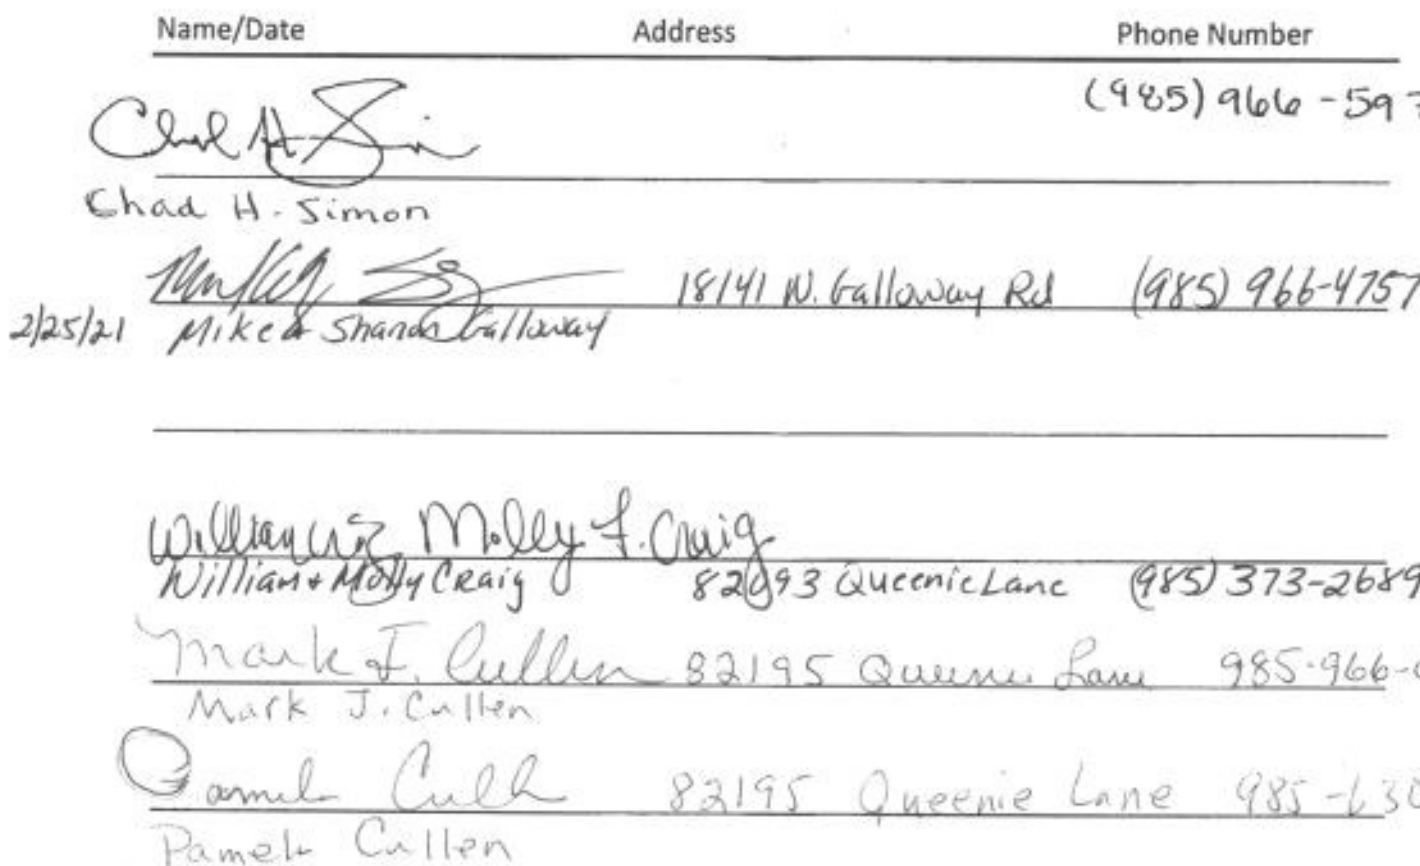 Name/Date Address Phone Number
(985) 966-597
Chad H Simon
Chad H. Simon
18141 N. Galloway Rd (985) 966-4757
2/25/21 Mike & Sharon Galloway
William Craig Molly F. Craig
William + Molly Craig 82093 Queenie Lane (985) 373-2689
Mark J. Cullen 82195 Queenie Lane 985-966-
Mark J. Cullen
Pamela Cullen 82195 Queenie Lane 985-630
Pamela Cullen